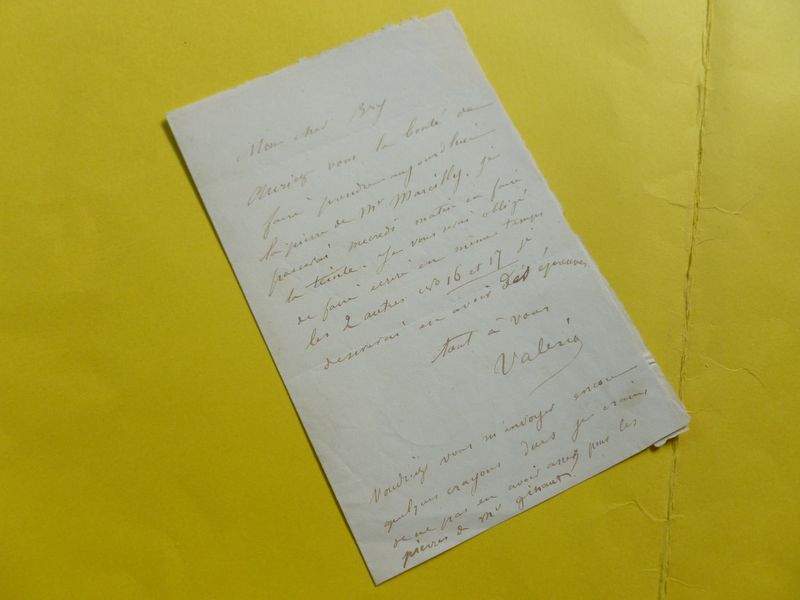 Mon cher Bry
Auriez vous la bonté de
faire prendre aujourd'hui
la pierre de Mr Marcilly. je
passerai mecredi matin en faire
la teinte. Je vous serai obligé
de faire écrire en même temps
les 2 autres nos 16 et 17 je
desirerai en avoir des épreuves
tout à vous
Valerio
Voudriez vous m'envoyer encore
quelques crayons durs je crains
de ne pas en avoir assez pour les
pierres de Mr